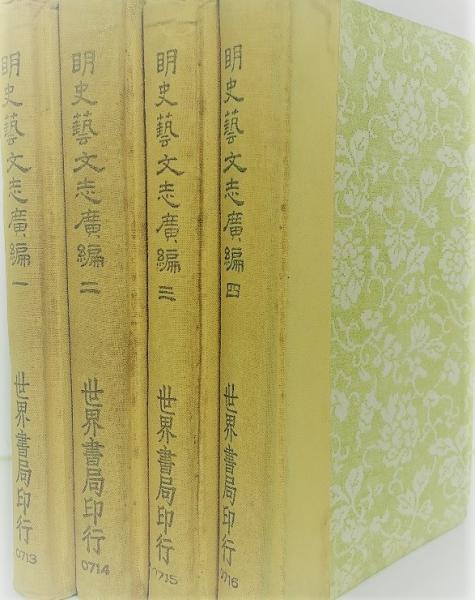 明史藝文志廣編 一
世界書局印行
0713
明史藝文志廣編 二
世界書局印行
0714
明史藝文志廣編 三
世界書局印行
0715
明史藝文志廣編 四
世界書局印行
0716